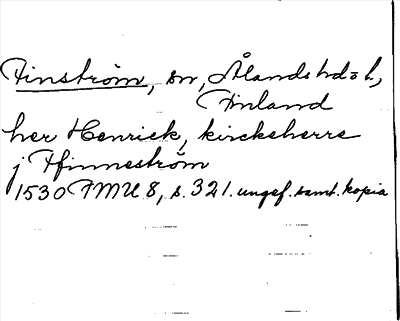 Finström, sn, Ålands hd o l,
Finland
her Henrick, kirckeherre
j Ffinneström
1530 FMU 8, s. 321. ungef. samt. kopia